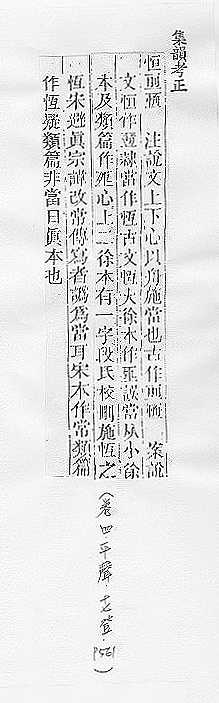 集韻考正
恒𠄨𢛢 注說文上下心以舟施當也古作𠄨𢛢 案說
文恒作𢛢隸當作恆古文恆大徐本作𠄨誤當从小徐
本及類篇作𠄨心上二徐本有一字段氏校刪施恆之
恆宋避眞宗諱改常傳寫者譌爲當耳宋本作常類篇
作恆疑類篇非當日眞本也
(卷四平聲·十七登·P561)